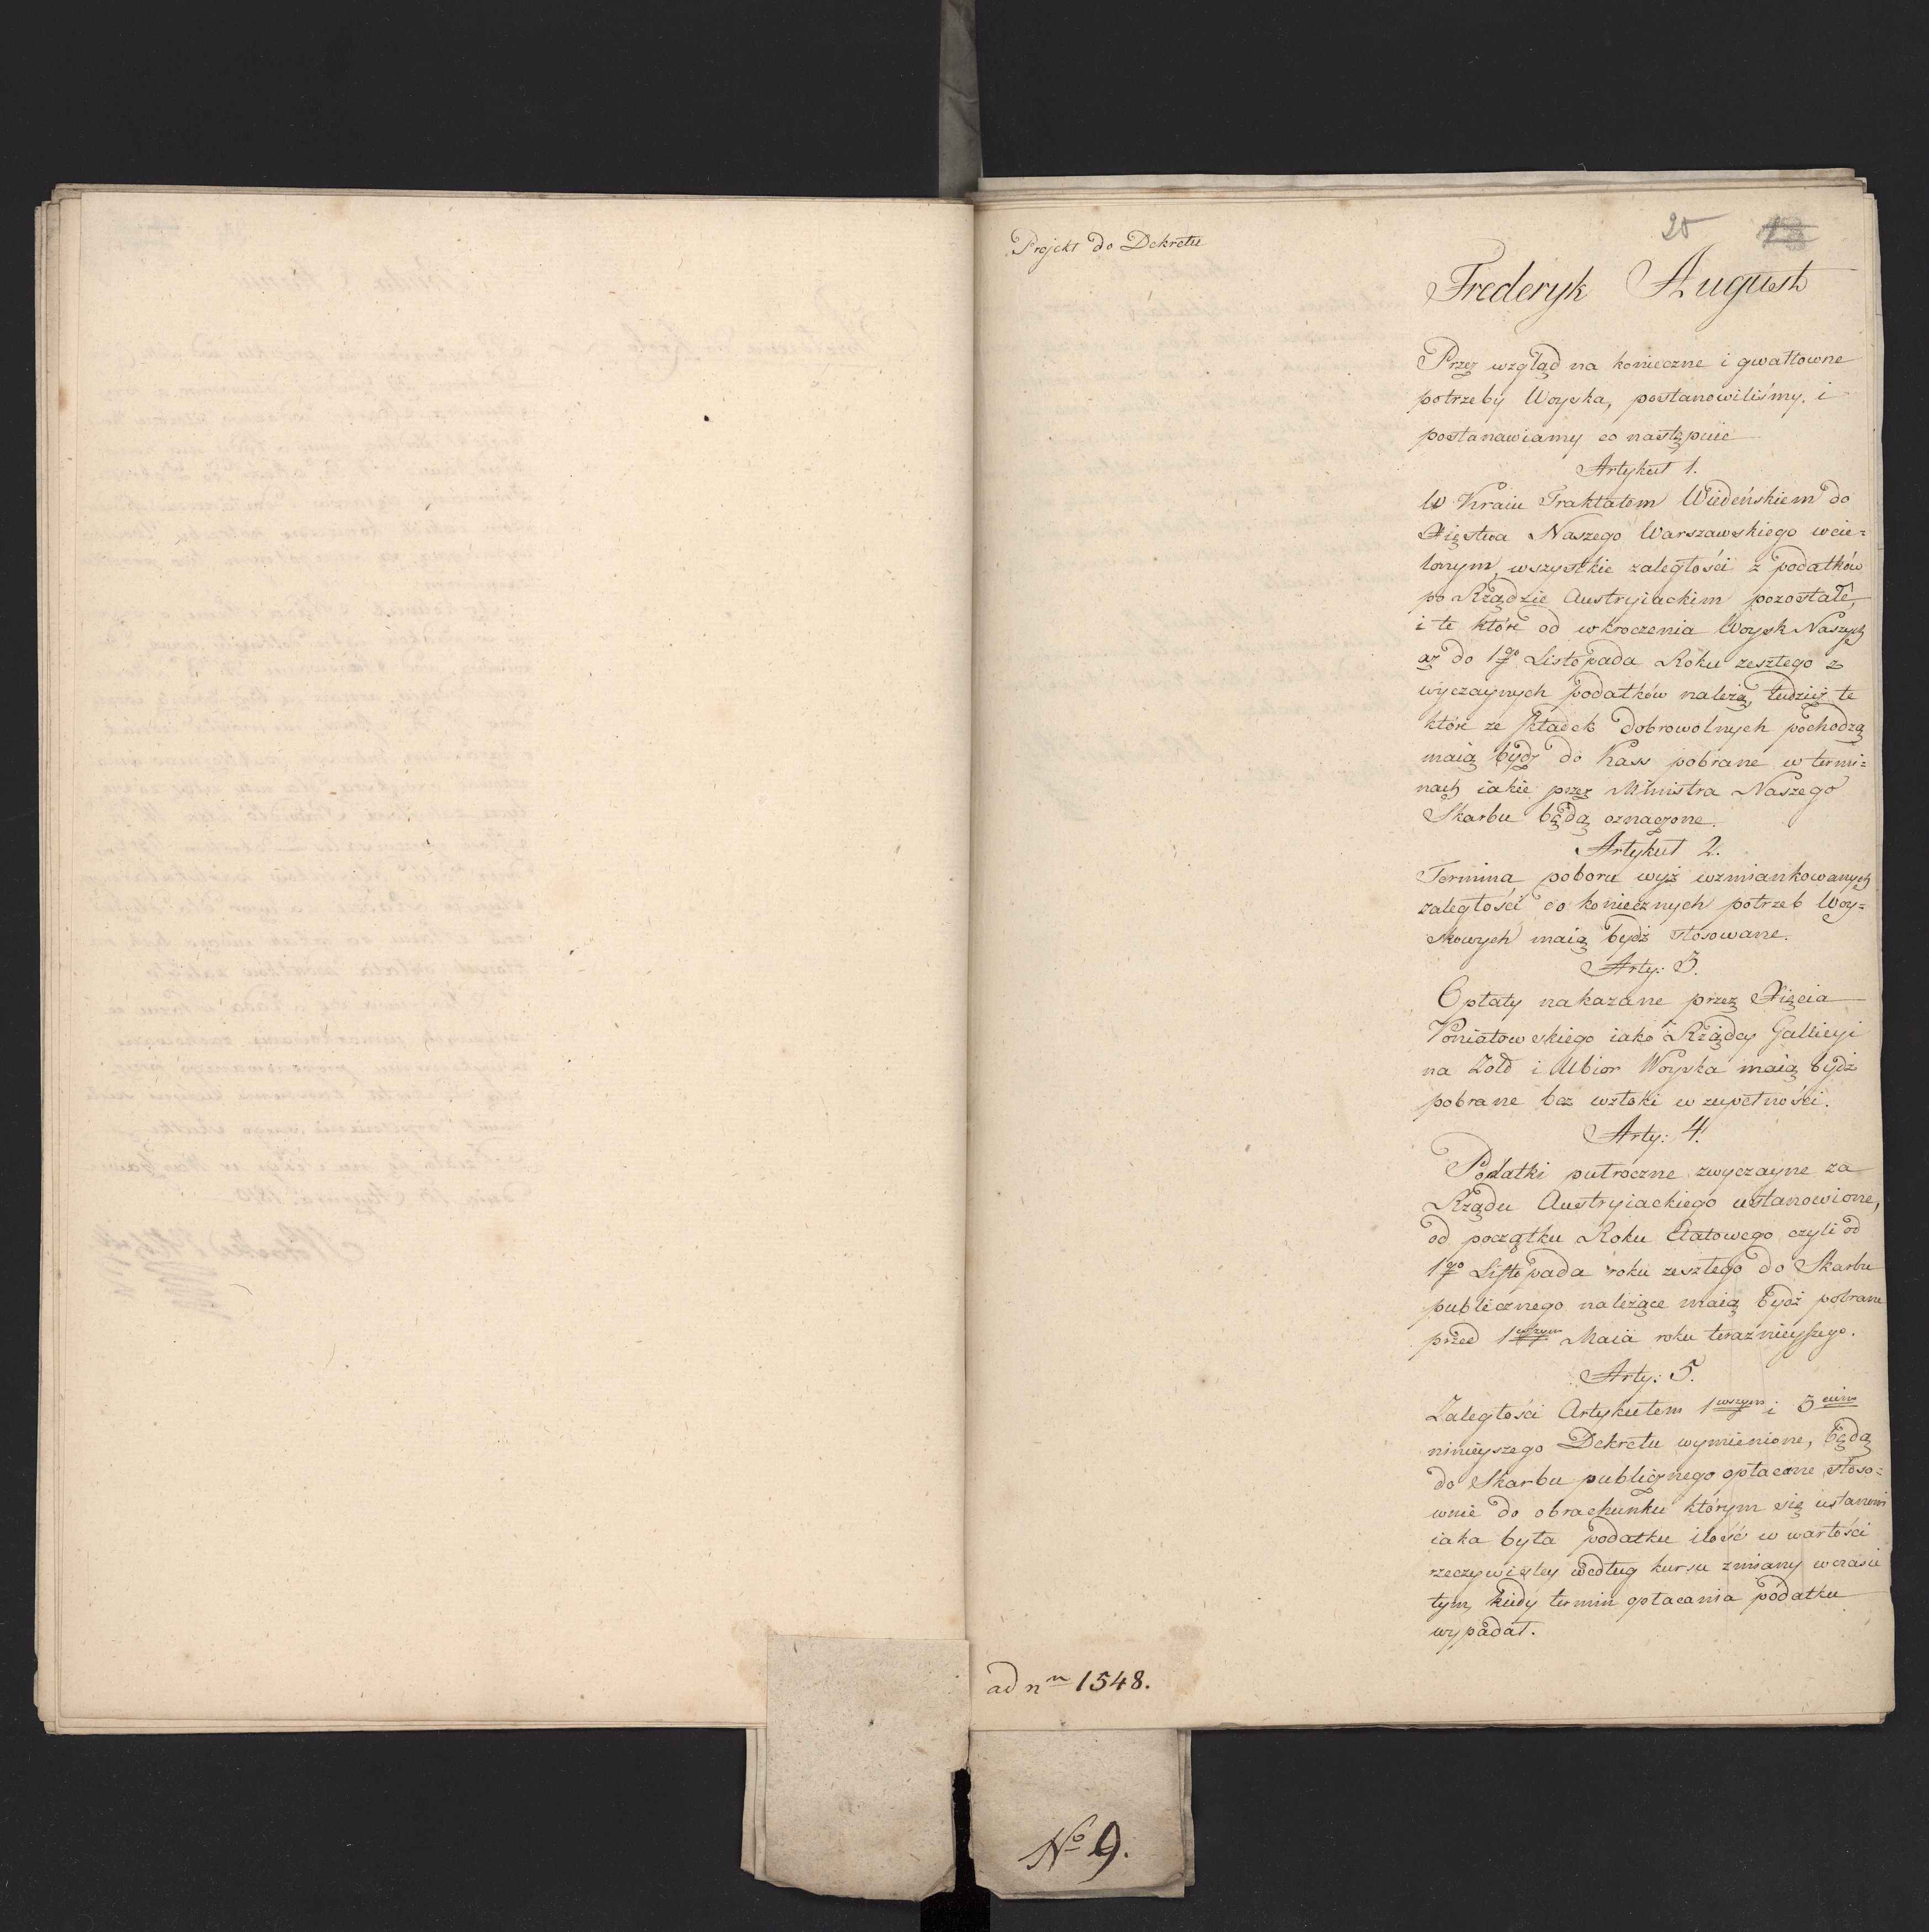 Projekt do Dekretu
25
Frederyk August
Przez wzgląd na konieczne i gwałtowne
potrzeby Woyska, postanowiliśmy, i
postanawiamy co następuie
Artykuł 1.
W Kraiu Traktatem Wiedeńskiem do
Xięstwa Naszego Warszawskiego wcie=
lonym, wszystkie zaległości z podatków
po Rządzie Austryiackim pozostałe,
i te które od wkroczenia Woysk Naszych
aż do 1go Listopada Roku zeszłego z
wyczaynych podatków należą, tudzież te
które ze składek dobrowolnych pochodzą
maią bydź do Kass pobrane w termi=
nach iakie przez Ministra Naszego
Skarbu będą oznaczone.
Artykuł 2.
Termina poboru wyż wzmiankowanych
zaległości do koniecznych potrzeb Woy=
skowych maią bydź stosowane.
Arty: 3.
Opłaty nakazane przez Xięcia
Poniatowskiego iako Rządcy Gallicyi
na Żołd i Ubior Woyska maią bydź
pobrane bez wzłoki w zupełności.
Arty: 4.
Podatki pułroczne zwyczayne za
Rządu Austryiackiego ustanowione,
od początku Roku Etatowego czyli od
1go Listopada roku zeszłego do Skarbu
publicznego należące maią bydź pobrane
przed 1wszym Maia roku teraźnieyszego.
Arty: 5.
Zaległości Artykułem 1wszym i 3cim
ninieyszego Dekretu wymienione, będą
do Skarbu publicznego opłacone stoso=
wnie do obrachunku którym się ustanowi
iaka była podatku ilość w wartości
rzeczywistey według kursu zmiany wczasie
tym, kiedy termin opłacania podatku
wypadał.
ad nm 1548.
No 9.